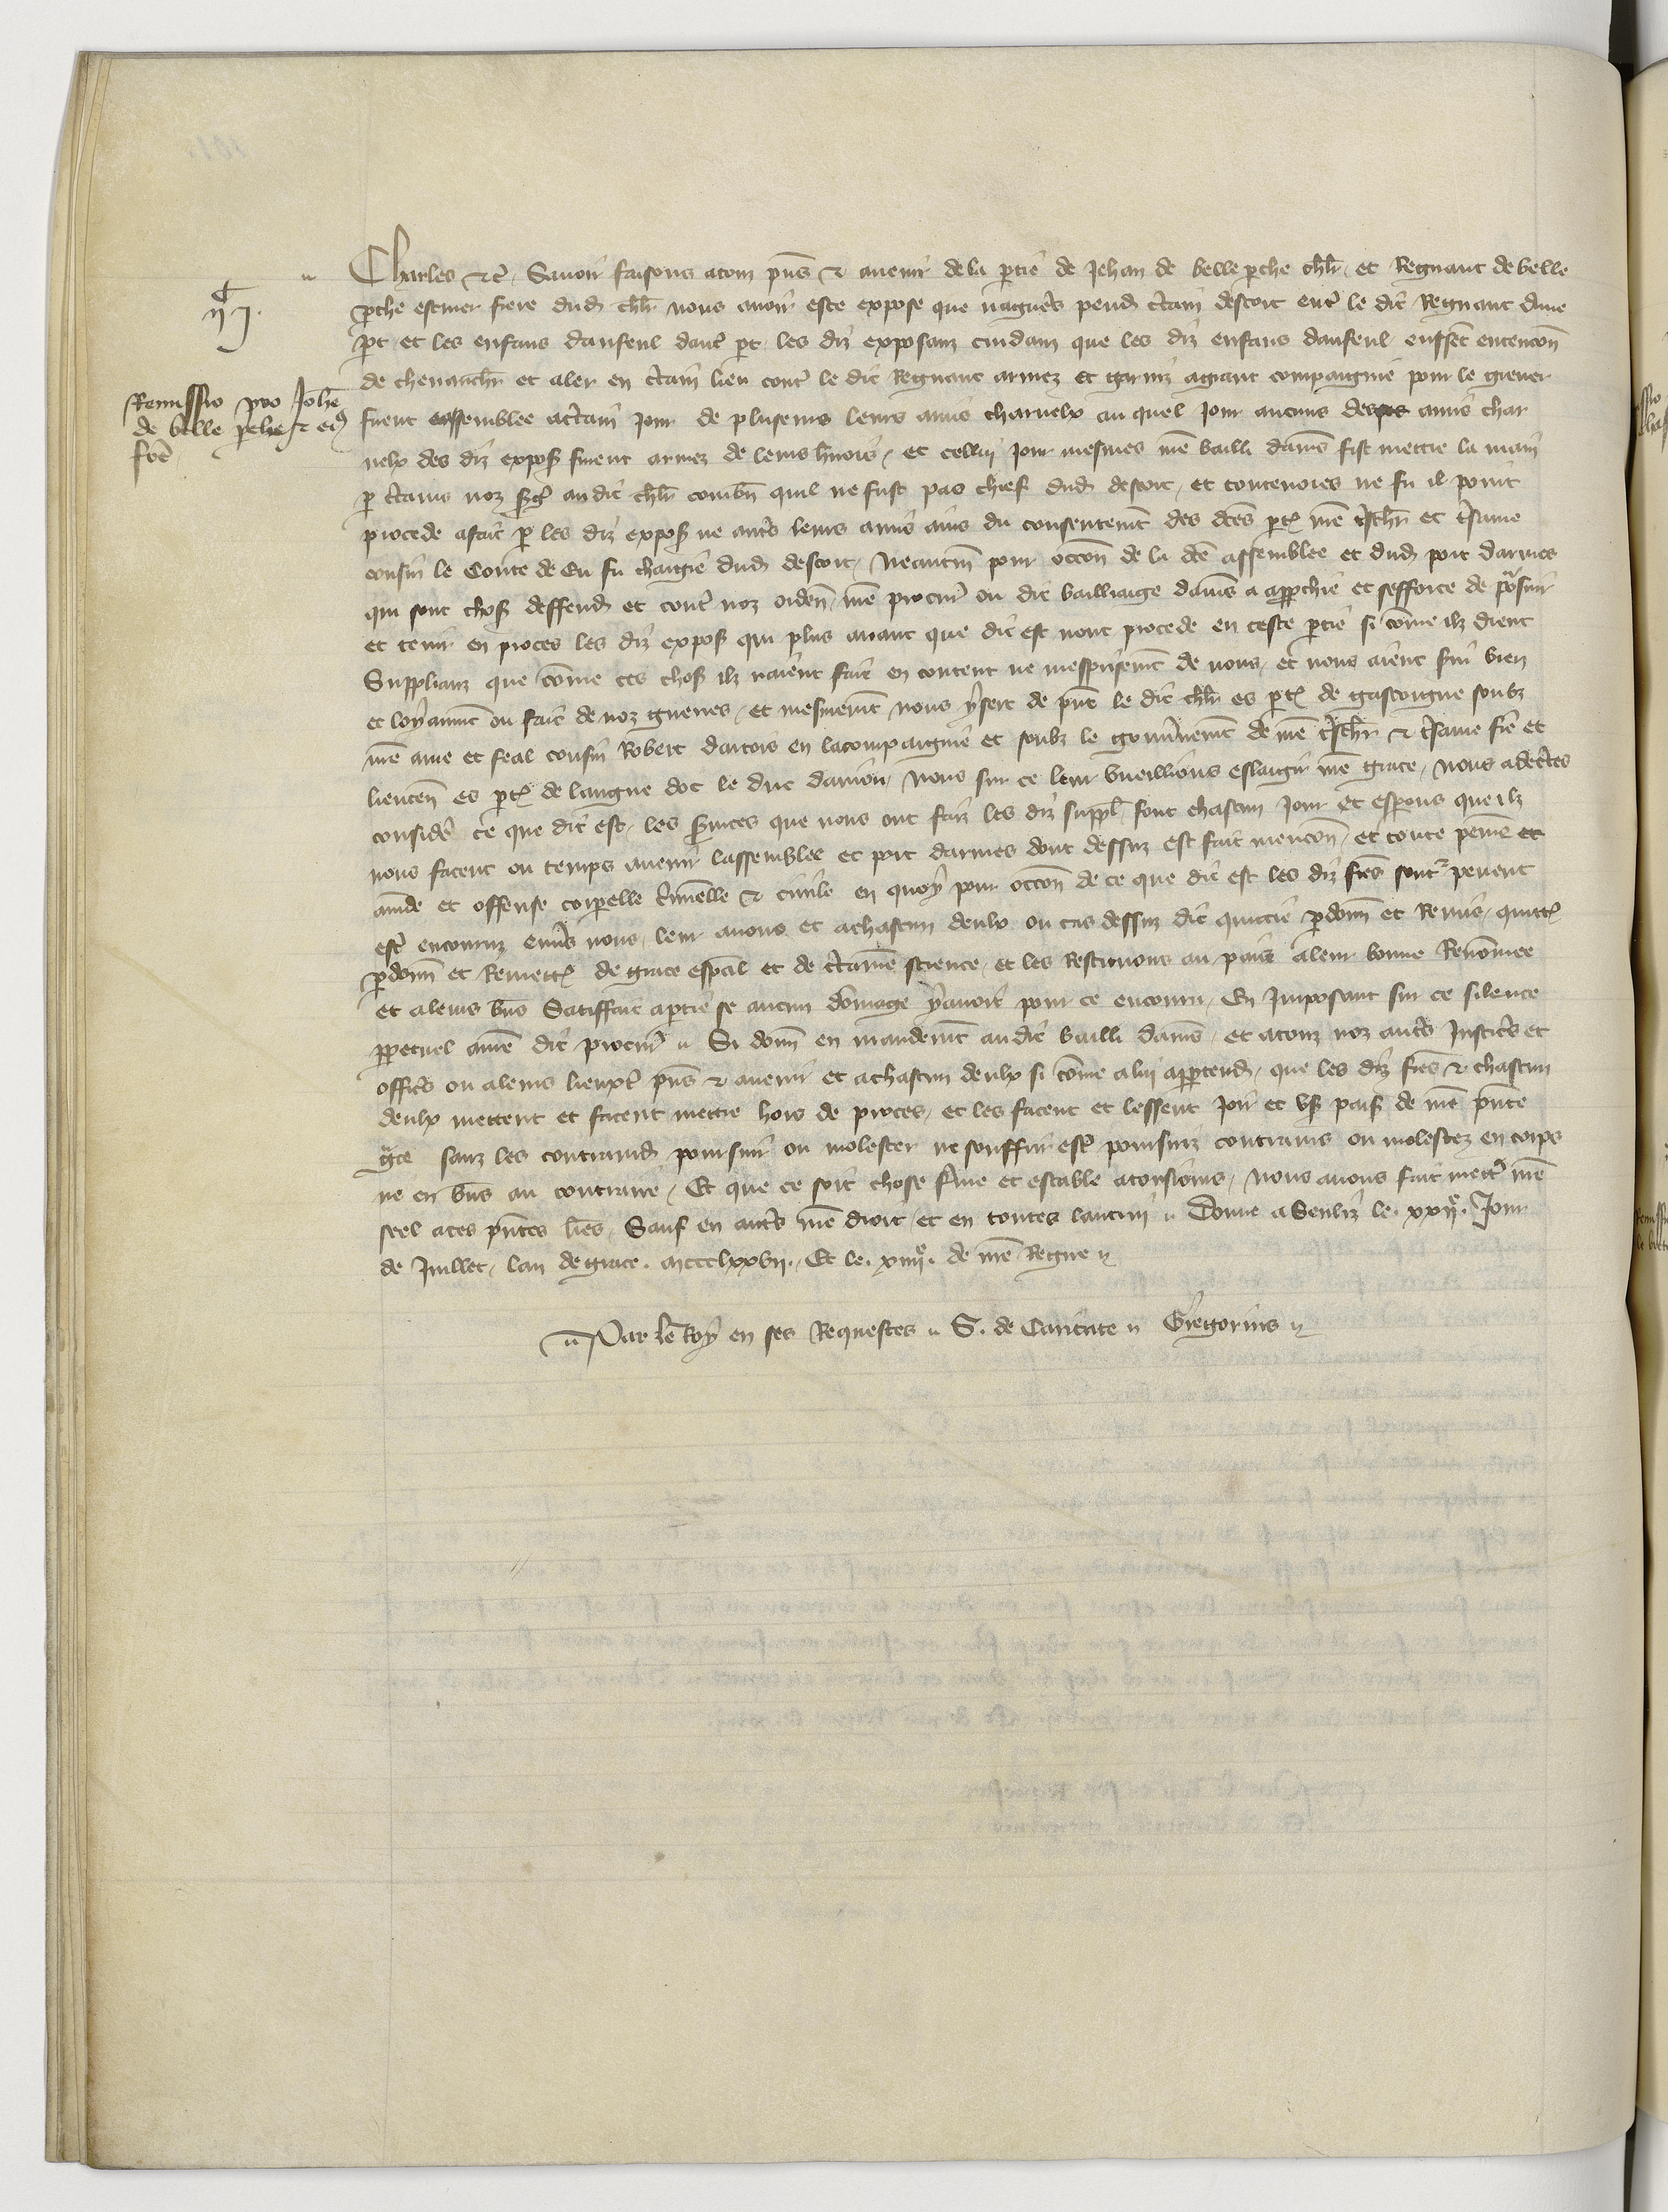 Charles etc. Savoir faisons a touz pñs & avenir de la ptie de Jehan de belle pche chlr et Regnaut de belle
pche escuier frere dud. chlr nous avoir este expose que nagueres pend. ctain descort entre le dit Regnaut dune
pt et les enfans daufeul dautre pt les diz exposanz cuidanz que les diz enfans daufeul eussent entencion
de chevauchier et aler en ctain lieu contre le dit Regnaut armez et garniz a grant compaignie pour le grever
Remissio pro Johe
de belle pche & ej
fre
firent assemblee a ctain jour de plusieurs leurs amis charnelx au quel jour aucuns des amis char
nelx des diz expos. furent armez de leurs hnois, et cellui jour mesmes nre bailli damiens fist mettre la main
p ctains noz sergens au dit chlr combn quil ne fust pas chief dud. descort, et toutevoies ne fu il point
procede a fait p les diz expos. ne autres leurs amis ains du consentemt des dces pties nre tschr et tsame
cousin le Conte de Eu fu chargie dud. descort, Neantm pour occon de la dce assemblee et dud. port darmes
qui sont choses deffend. et contre noz orden. nre procur. ou dit bailliaige damiens a approchie et sefforce de psuir
et tenir en proces les diz expos. qui plus avant que dit est nont procede en ceste ptie si come ilz dient
Supplianz que come ces choses ilz naient fait en content ne mesprisemt de nous, et nous aient svi bien
et loyaumt ou fait de noz guerres, et mesmemt nous y sert de pnt le dit chlr es pties de gascoigne soubz
nre ame et feal cousin Robert dartois en la compaignie et soubz le gouvnemt de nre tschr & tsame fre et
lieuten. es pties de langue doc le duc danjou, Nous sur ce leur vueillions eslargir nre grace, Nous adcertes
consideré ce que dit est, les svices que nous ont faiz les diz suppl. font chascun jour et esperons que ilz
nous facent ou temps avenir lassemblee et port darmes dont dessuz est fait mencon, et toute peine et
amde et offense corporelle criminelle & civile en quoy pour occon de ce que dit est les diz fres sont & pevent
estre encouruz envs nous, leur avons et a chascun deulx ou cas dessuz dit quittie pdonn et Remis, quitt.
pdonn. et Remett. de grace espcial et de ctaine science, et les Restituons au pais a leur bonne Renomee
et a leurs bns Satiffait a ptie se aucun domage y avoit pour ce encouru, En Imposant sur ce silence
ppetuel a nre dit procur. Si donn. en mandemt au dit bailli damiens, et a touz noz autres Justiciers et
officiers ou a leurs lieuxt. pns & avenir et a chascun deulx si come a lui apptend., que les diz fres & chascun
deulx mettent et facent mettre hors de proces, et les facent et lessent Joir et user paisib. de nre pnte
grace sanz les contraind. poursuir ou molester ne souffrir estre poursuiz contrains ou molestez en corps
ne en bns au contraire, Et que ce soit chose ferme et estable a tousjours, Nous avons fait mettre nre
seel a ces pntes lres, Sauf en autres nre droit, et en toutes lautrui. Donne a Senliz le. xxije. Jour
de Juillet, lan de grace. mccclxxvij. Et le. xiiije. de nre Regne
Par le Roy en ses Requestes. S. de Caritate. Gregorius